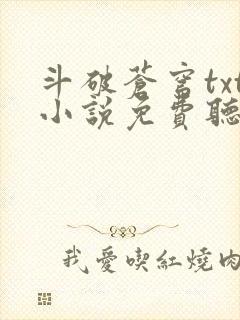 斗破蒼穹txt
小說免費聽
我愛喫紅燒肉